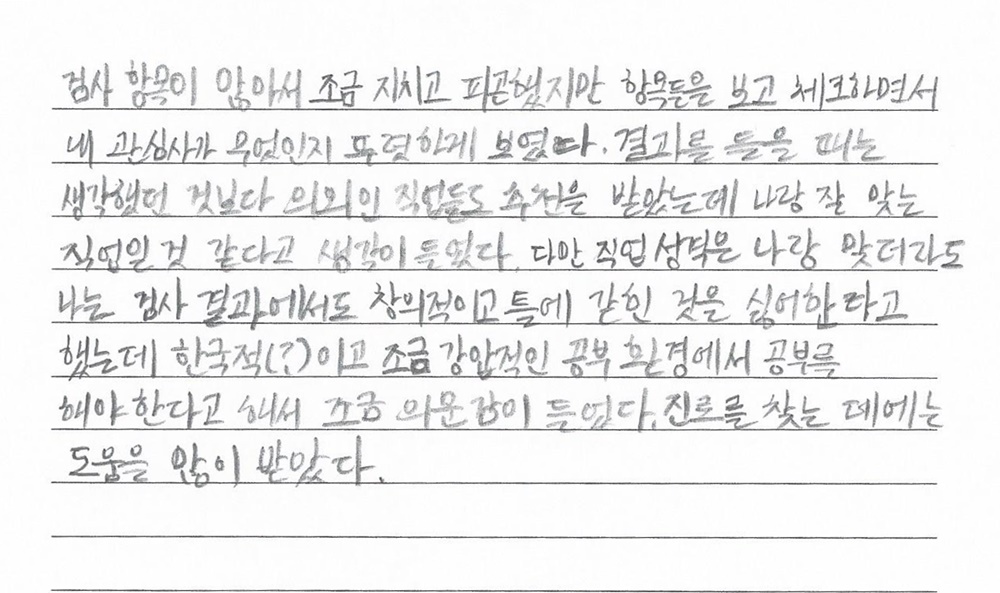 검사 항목이 많아서 조금 지치고 피곤했지만 항목들을 보고 체크하면서
내 관심사가 무엇인지 뚜렷하게 보였다. 결과를 들을 때는
생각했던 것보다 의외인 직업들도 추천을 받았는데 나랑 잘 맞는
직업일 것 같다고 생각이 들었다. 다만 직업 성격은 나랑 맞더라도
나는 검사 결과에서도 창의적이고 틀에 갇힌 것을 싫어한다고
했는데 한국적(?)이고 조금 강압적인 공부 환경에서 공부를
해야 한다고 해서 조금 의문감이 들었다. 진로를 찾는 데에는
도움을 많이 받았다.